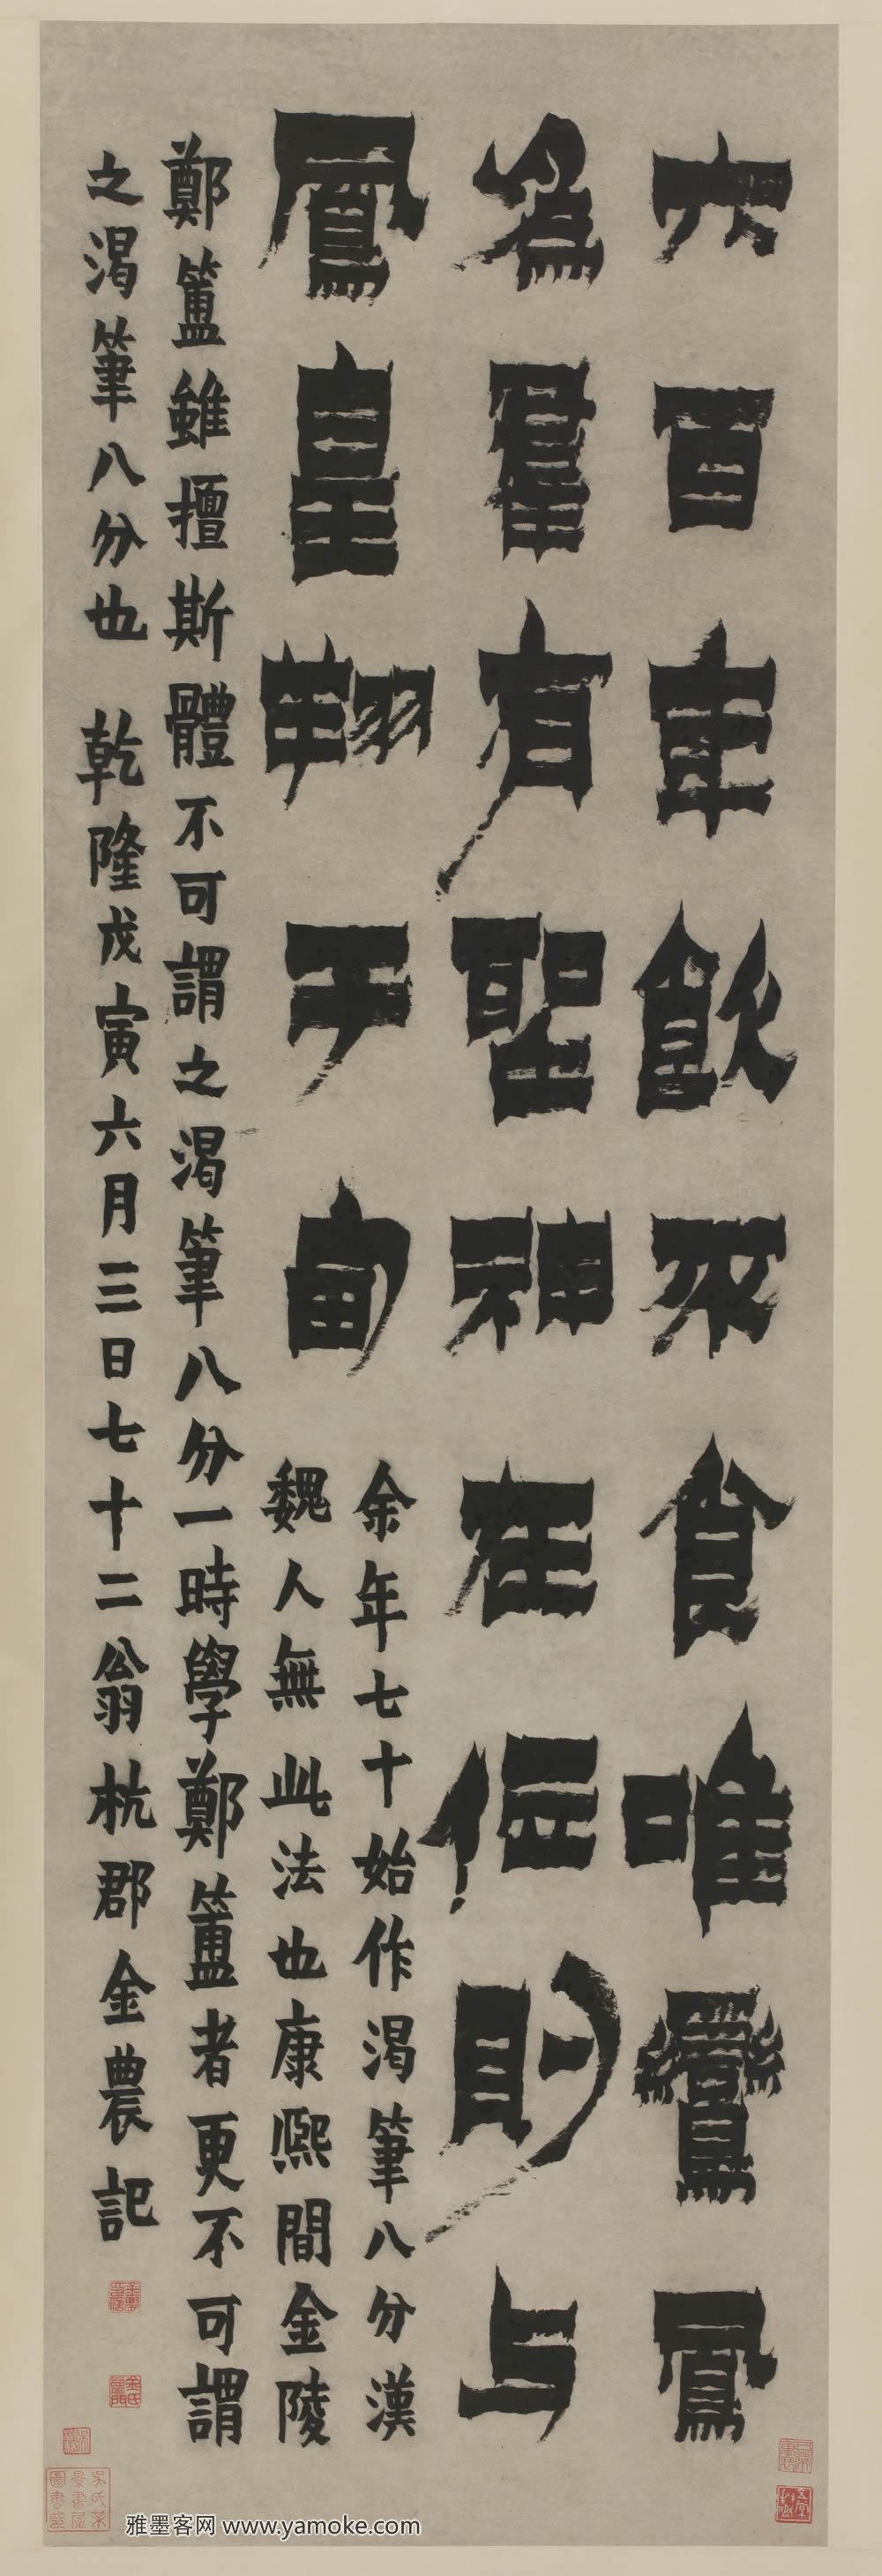 六百年飲不食唯鸞鳳
為羣有聖神在位則与
鳳皇翔于甸
余年七十始作渴筆八分漢
魏人無此法也康熙間金陵
鄭簠雖擅斯體不可謂之渴筆八分一時學鄭簠者更不可謂
之渴筆八分也 乾隆戊寅六月三日七十二翁杭郡金農記
雅墨客网 www.yamoke.com